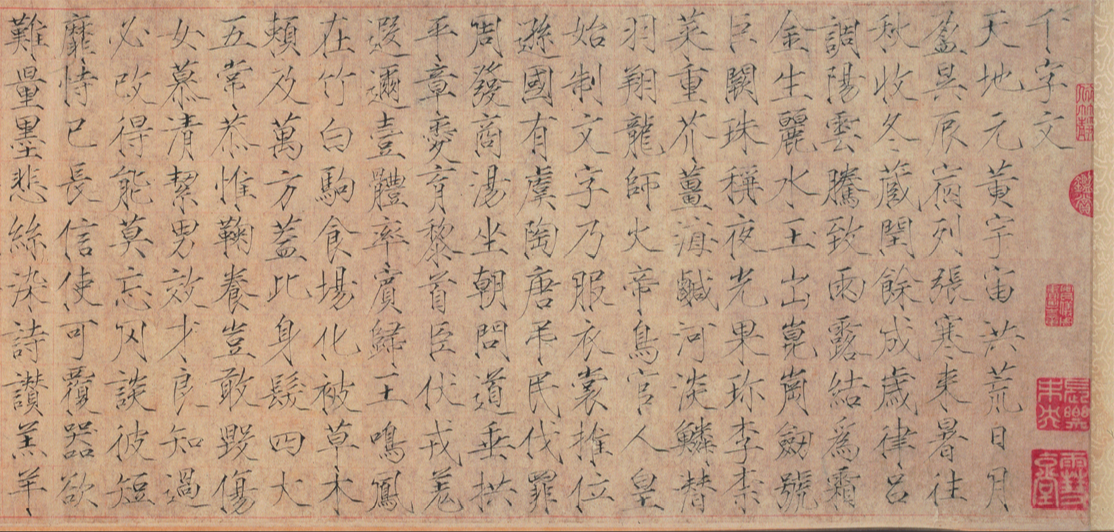 千字文
天地元黃宇宙洪荒日月
盈昃辰宿列張寒来暑往
秋收冬藏閏餘成歲律呂
調陽雲騰致雨露結為霜
金生麗水玉出崑崗劒號
巨闕珠稱夜光果珍李柰
菜重芥薑海鹹河淡鱗潛
羽翔龍師火帝鳥官人皇
始制文字乃服衣裳推位
遜國有虞陶唐弔民伐罪
周發商湯坐朝問道垂拱
平章愛育黎首臣伏戎羌
遐邇壹體率賓歸王鳴鳳
在竹白駒食場化被草木
賴及萬方蓋此身髮四大
五常恭惟鞠養豈敢毀傷
女慕清絜男效才良知過
必改得能莫忘罔談彼短
靡恃己長信使可覆器欲
難量墨悲絲染詩讚羔羊
長樂
未央